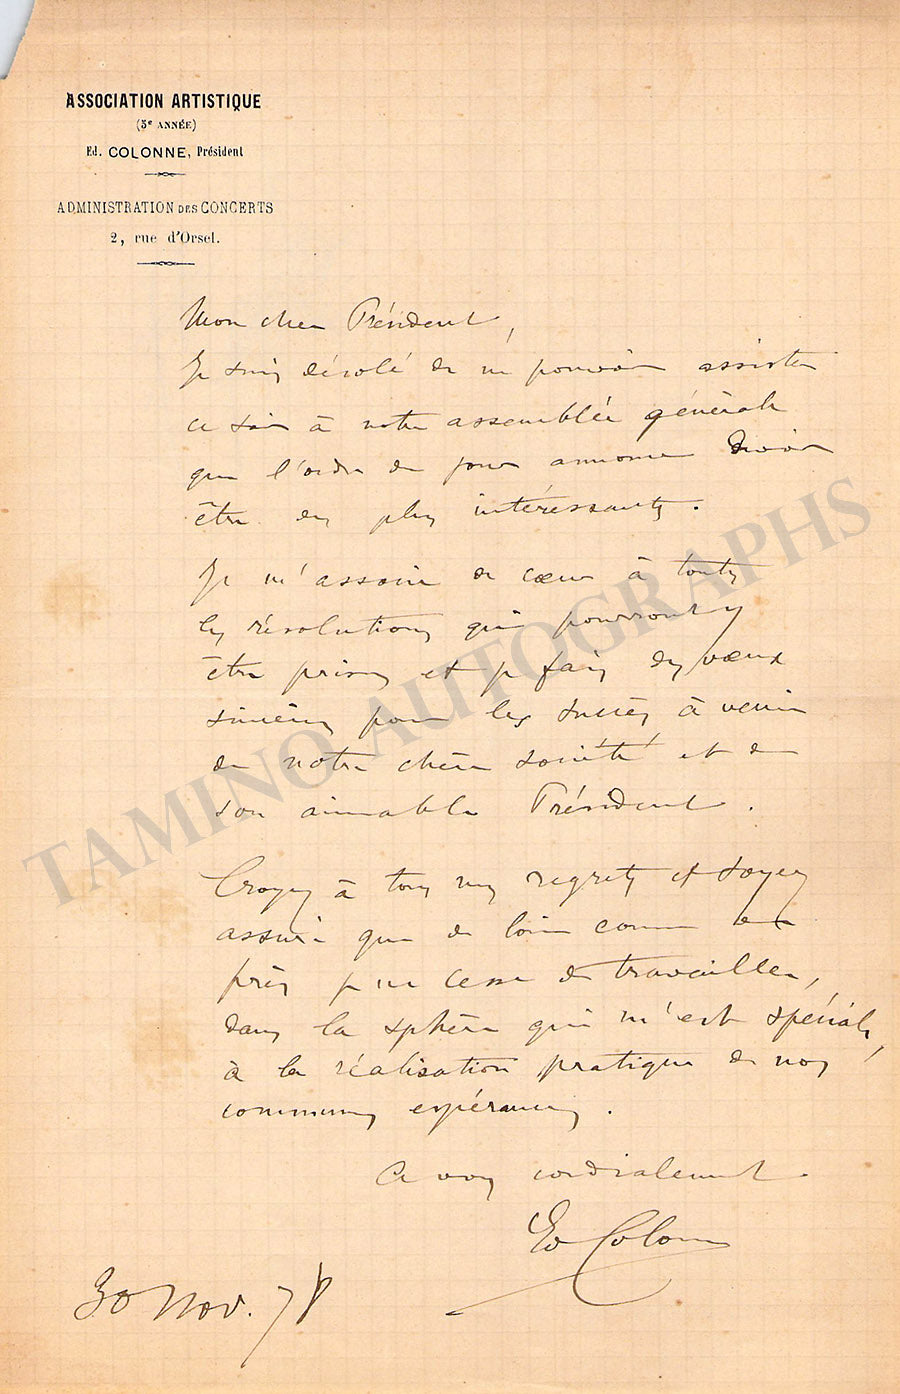 ASSOCIATION ARTISTIQUE
(5e ANNÉE)
Ed. COLONNE, Président
ADMINISTRATION DES CONCERTS
2, rue d'Orsel.
Mon cher Président,
Je suis désolé de ne pouvoir assister
ce soir à notre assemblée générale
que l'ordre du jour annonce devoir
être des plus intéressantes.
Je m'associe de cœur à toutes
les résolutions qui pourront y
être prises et je fais des vœux
sincères pour les succès à venir
de notre chère société et de
son aimable Président.
Croyez à tous mes regrets et soyez
assuré que de loin comme de
près je ne cesse de travailler,
dans la sphère qui m'est spéciale,
à la réalisation pratique de nos
communes espérances.
A vous cordialement
Ed Colonne
30 Nov. 78
TAMINO AUTOGRAPHS